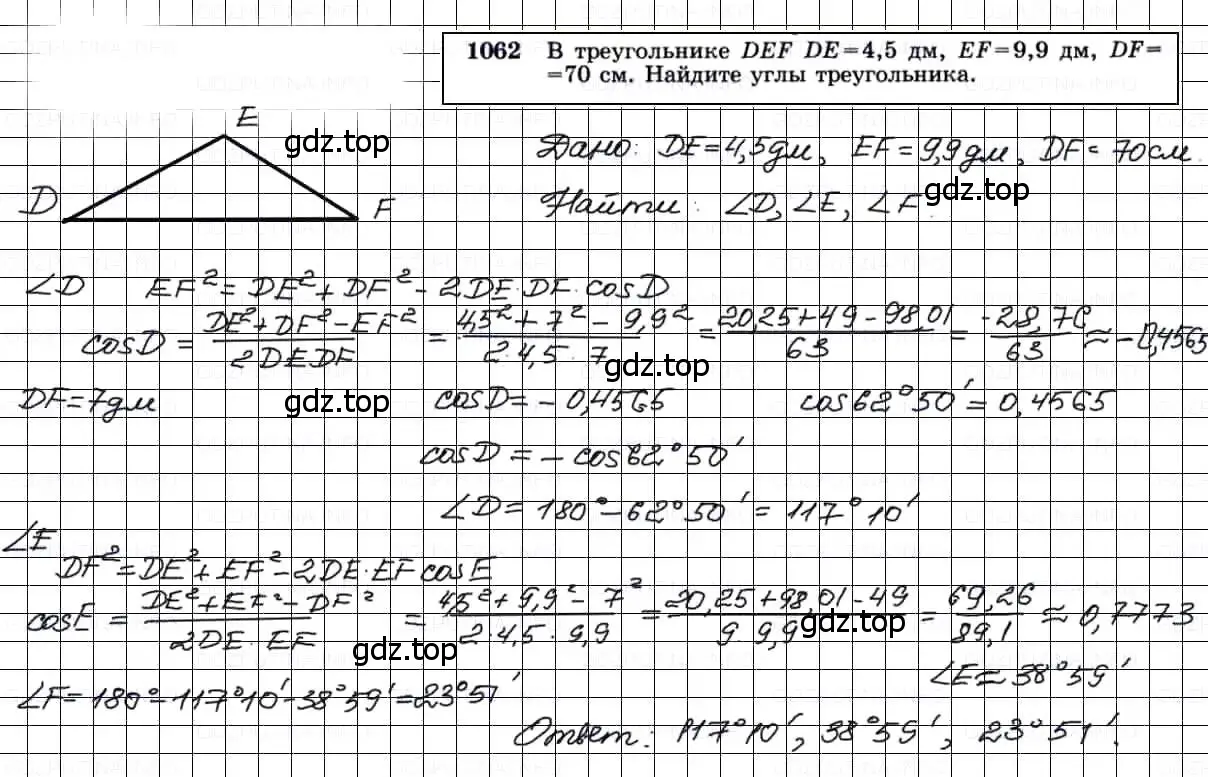 1062 В треугольнике DEF DE=4,5 дм, EF=9,9 дм, DF=
=70 см. Найдите углы треугольника.
E
D
F
gdz.top
Дано: DE=4,5дм, EF=9,9дм, DF=70см.
Найти: ∠D, ∠E, ∠F.
gdz.top
∠D EF²=DE²+DF²-2DE·DF·cosD
cosD = (DE²+DF²-EF²)/(2DEDF) = (4,5²+7²-9,9²)/(2·4,5·7) = (20,25+49-98,01)/63 = (-28,76)/63 ≈ -0,4565
gdz.top
DF=7дм cosD=-0,4565 cos62°50'=0,4565
gdz.top
cosD=-cos62°50'
∠D=180°-62°50'=117°10'
∠E
DF²=DE²+EF²-2DE·EF cosE
cosE = (DE²+EF²-DF²)/(2DE·EF) = (4,5²+9,9²-7²)/(2·4,5·9,9) = (20,25+98,01-49)/(9·9,9) = 69,26/89,1 ≈ 0,7773
gdz.top
gdz.top
∠E≈38°59'
∠F=180°-117°10'-38°59'=23°51'
Ответ: 117°10', 38°59', 23°51'.